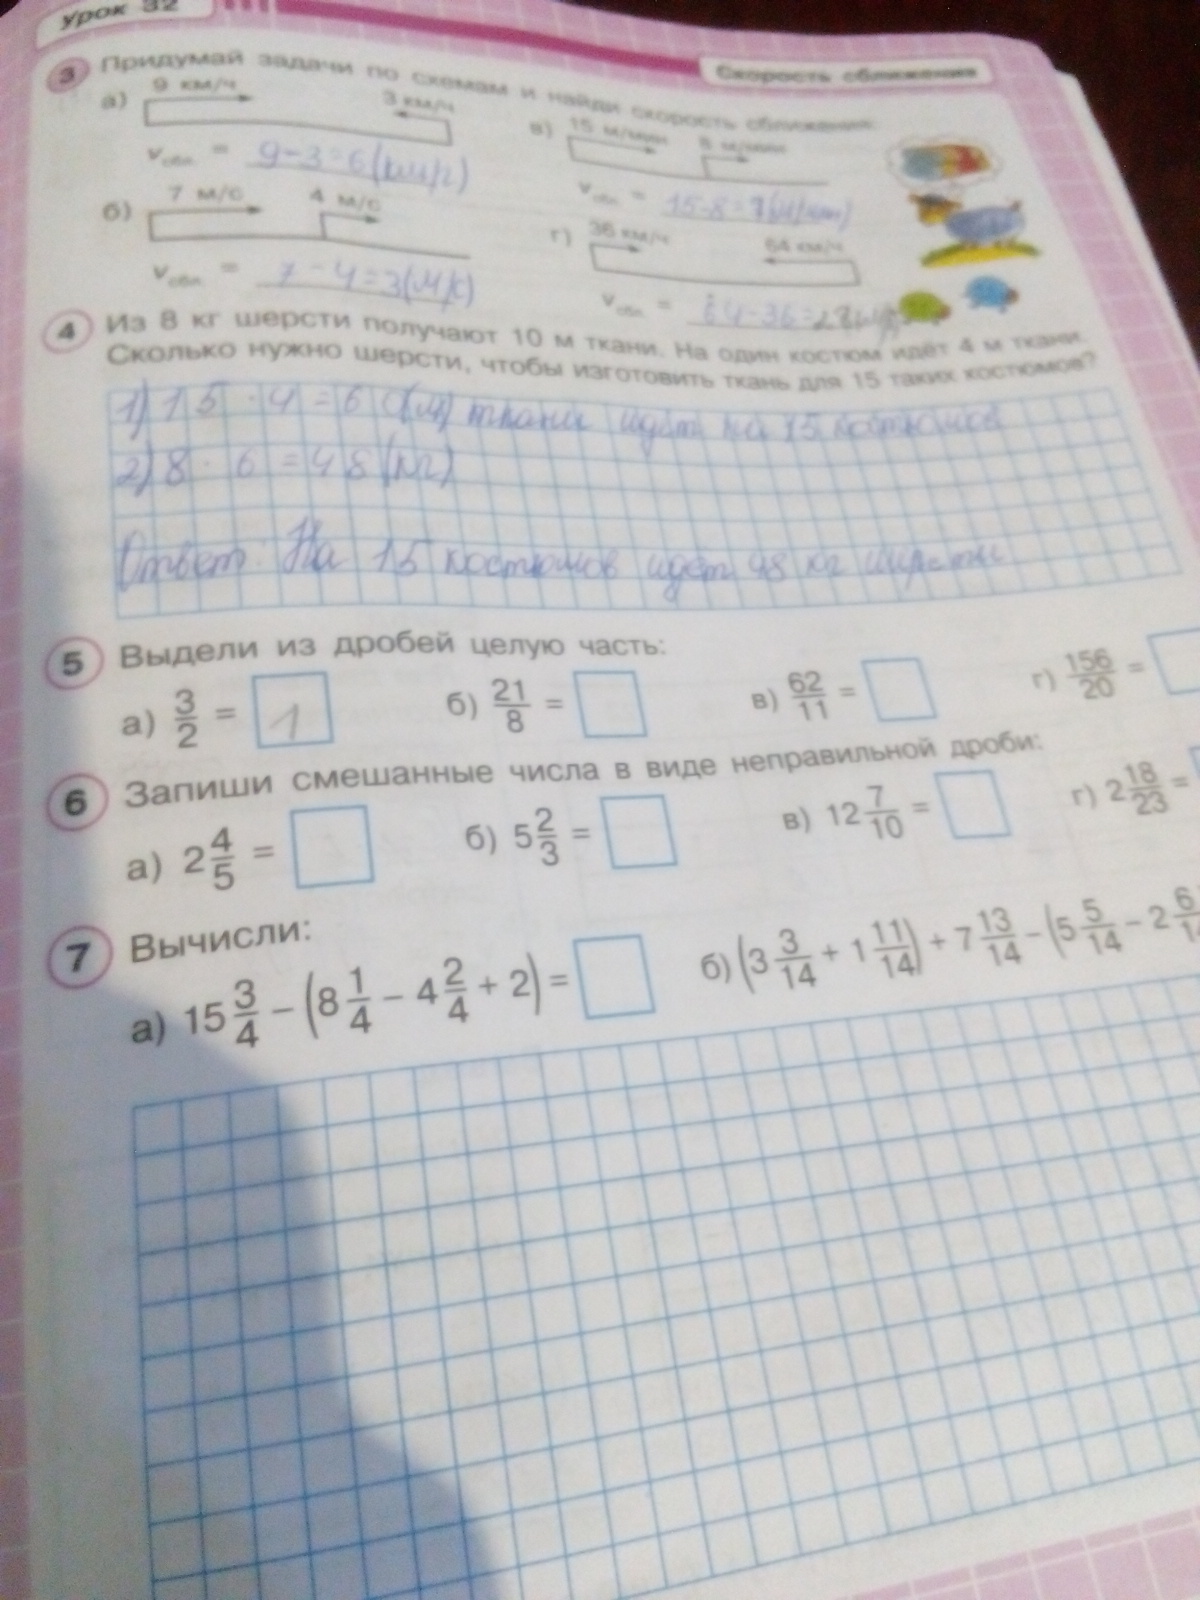 Урок 32
Скорость сближения
3 Придумай задачи по схемам и найди скорость сближения:
а) 9 км/ч 3 км/ч
vсбл. = 9-3=6(км/ч)
в) 15 м/мин 8 м/мин
vсбл. = 15-8=7(м/мин)
б) 7 м/с 4 м/с
vсбл. = 7-4=3(м/с)
г) 36 км/ч 64 км/ч
vсбл. = 64-36=28
4 Из 8 кг шерсти получают 10 м ткани. На один костюм идёт 4 м ткани.
Сколько нужно шерсти, чтобы изготовить ткань для 15 таких костюмов?
1) 15 · 4 = 60(м) ткани идёт на 15 костюмов
2) 8 · 6 = 48 (кг)
Ответ: На 15 костюмов идёт 48 кг шерсти
5 Выдели из дробей целую часть:
а) 3/2 = 1 б) 21/8 = в) 62/11 = г) 156/20 =
6 Запиши смешанные числа в виде неправильной дроби:
а) 2 4/5 = б) 5 2/3 = в) 12 7/10 = г) 2 18/23 =
7 Вычисли:
а) 15 3/4 − (8 1/4 − 4 2/4 + 2) = б) (3 3/14 + 1 11/14) + 7 13/14 − (5 5/14 − 2 6/14